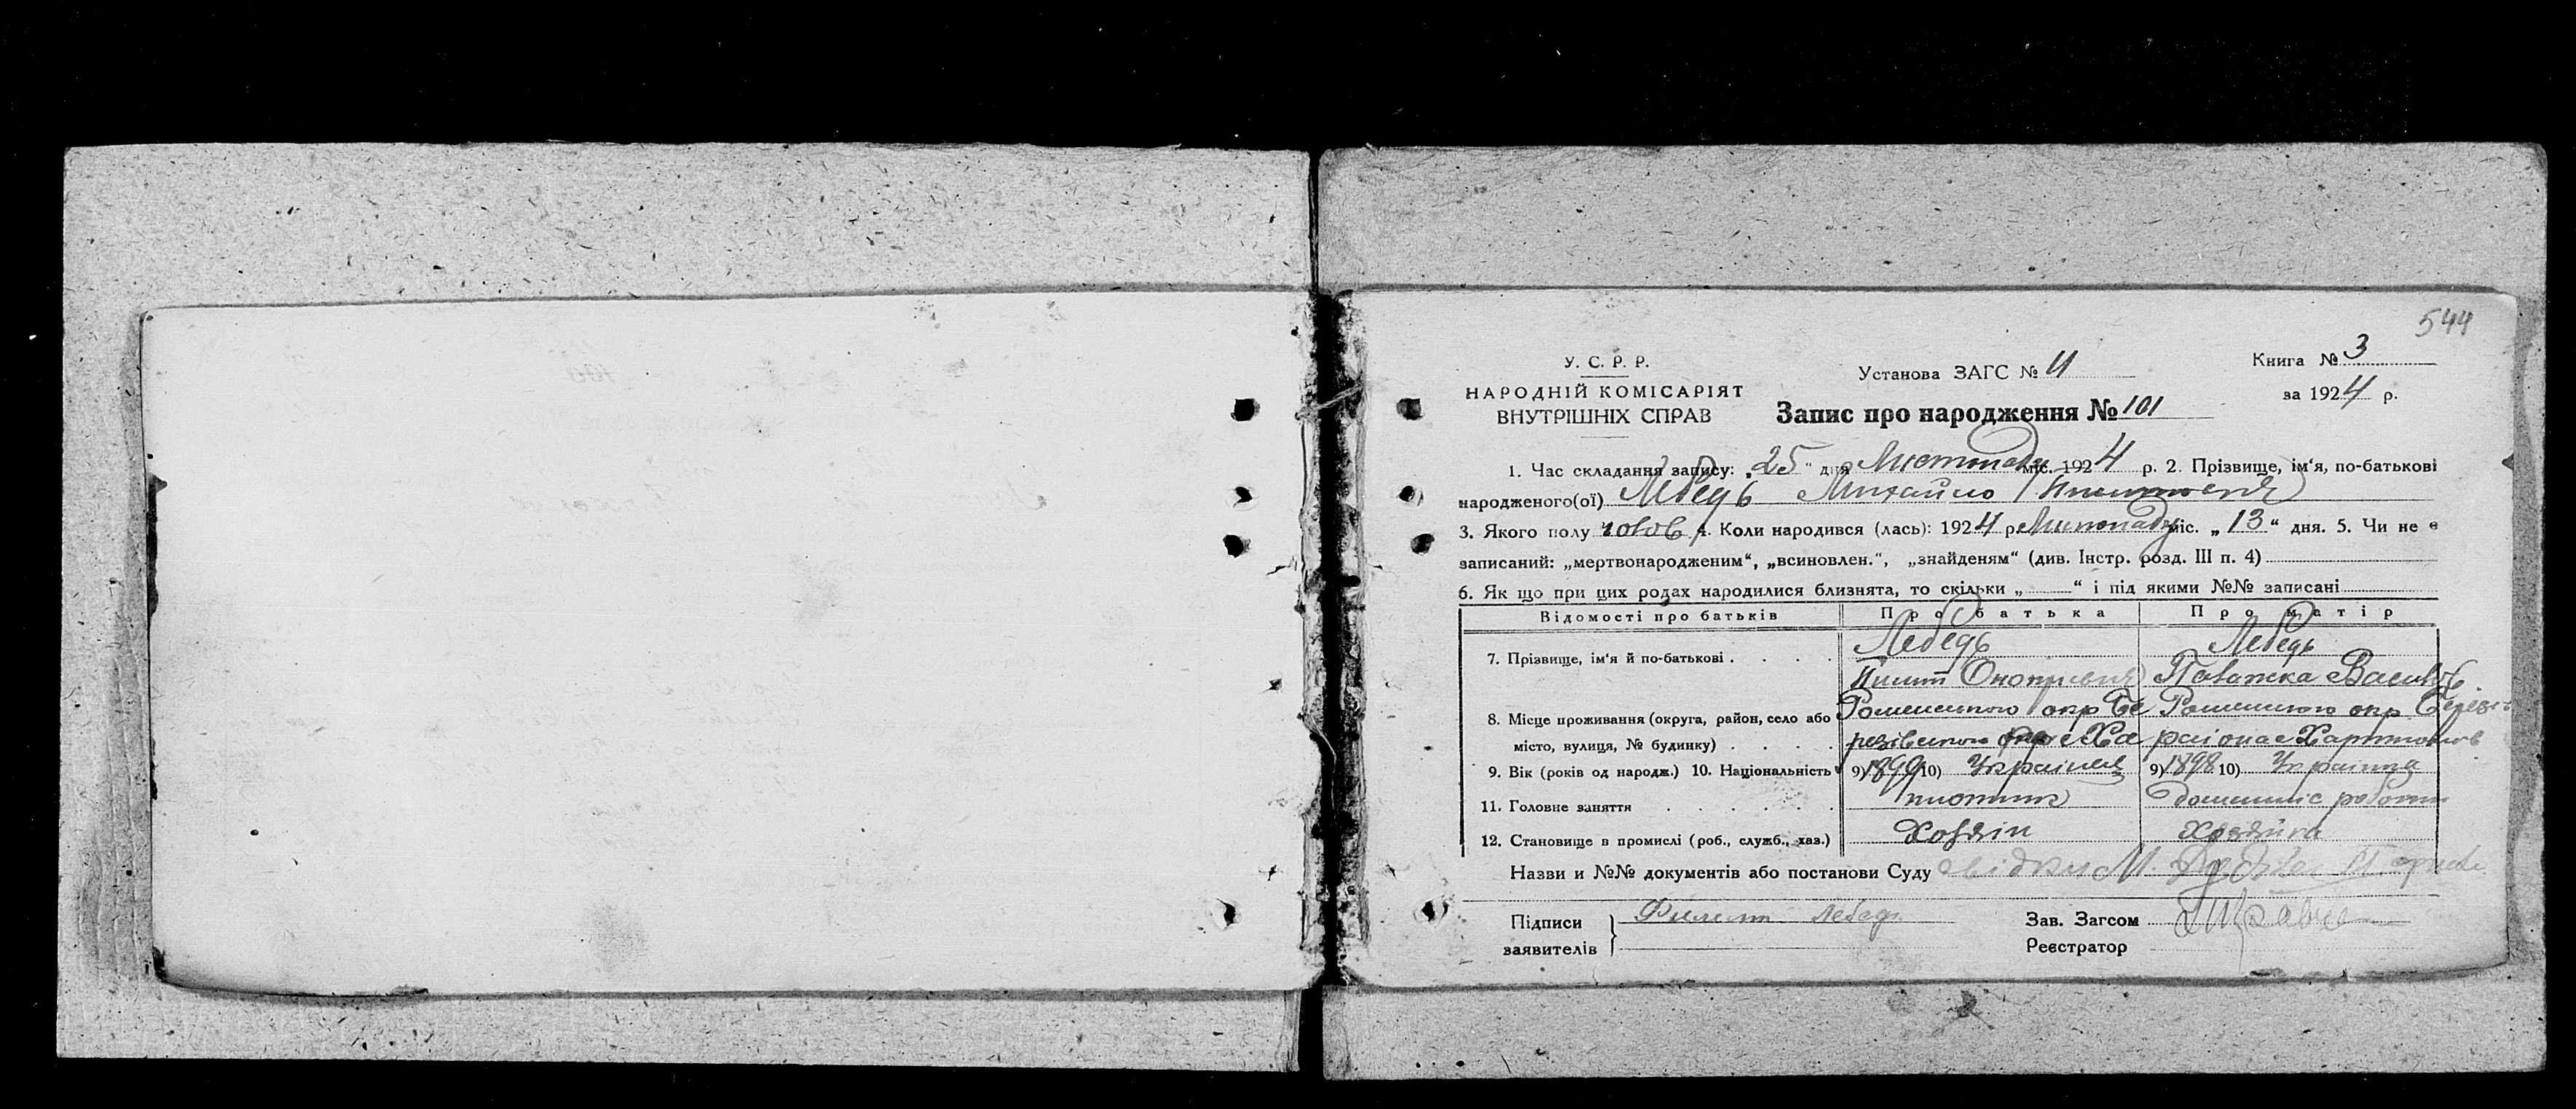 544
У. С. Р. Р.
НАРОДНІЙ КОМІСАРІЯТ
ВНУТРІШНІХ СПРАВ
Установа ЗАГС №
Книга № 3
за 1924 р.
Запис про народження № 101
1. Час складання запису: „25“ дня Листопаду міс. 1924 р. 2. Прізвище, ім'я, по-батькові
народженого(ої) Лебедь Михайло
3. Якого полу чолов 4. Коли народився (лась): 1924 р. Листопаду міс. „13“ дня. 5. Чи не є
записаний: „мертвонародженим“, „всиновлен.“, „знайденям“ (див. Інстр. розд. III п. 4)
6. Як що при цих родах народилися близнята, то скільки „ “ і під якими №№ записані
Відомості про батьків Про батька Про матір
7. Прізвище, ім'я й по-батькові Лебедь Лебедь
Василів
8. Місце проживання (округа, район, село або Роменського окр Бе Роменського окр Березів
місто, вулиця, № будинку) резівського с Ха району с Харитонов
9. Вік (років од народж.) 10. Національність 9) 1899 10) Українец 9) 1898 10) Українка
11. Головне заняття плотник домашнє робот
12. Становище в промислі (роб., служб., хаз.) Хозяін Хозяйка
Назви и №№ документів або постанови Суду
Підписи
заявителів
Филип Лебедь
Зав. Загсом
Реєстратор